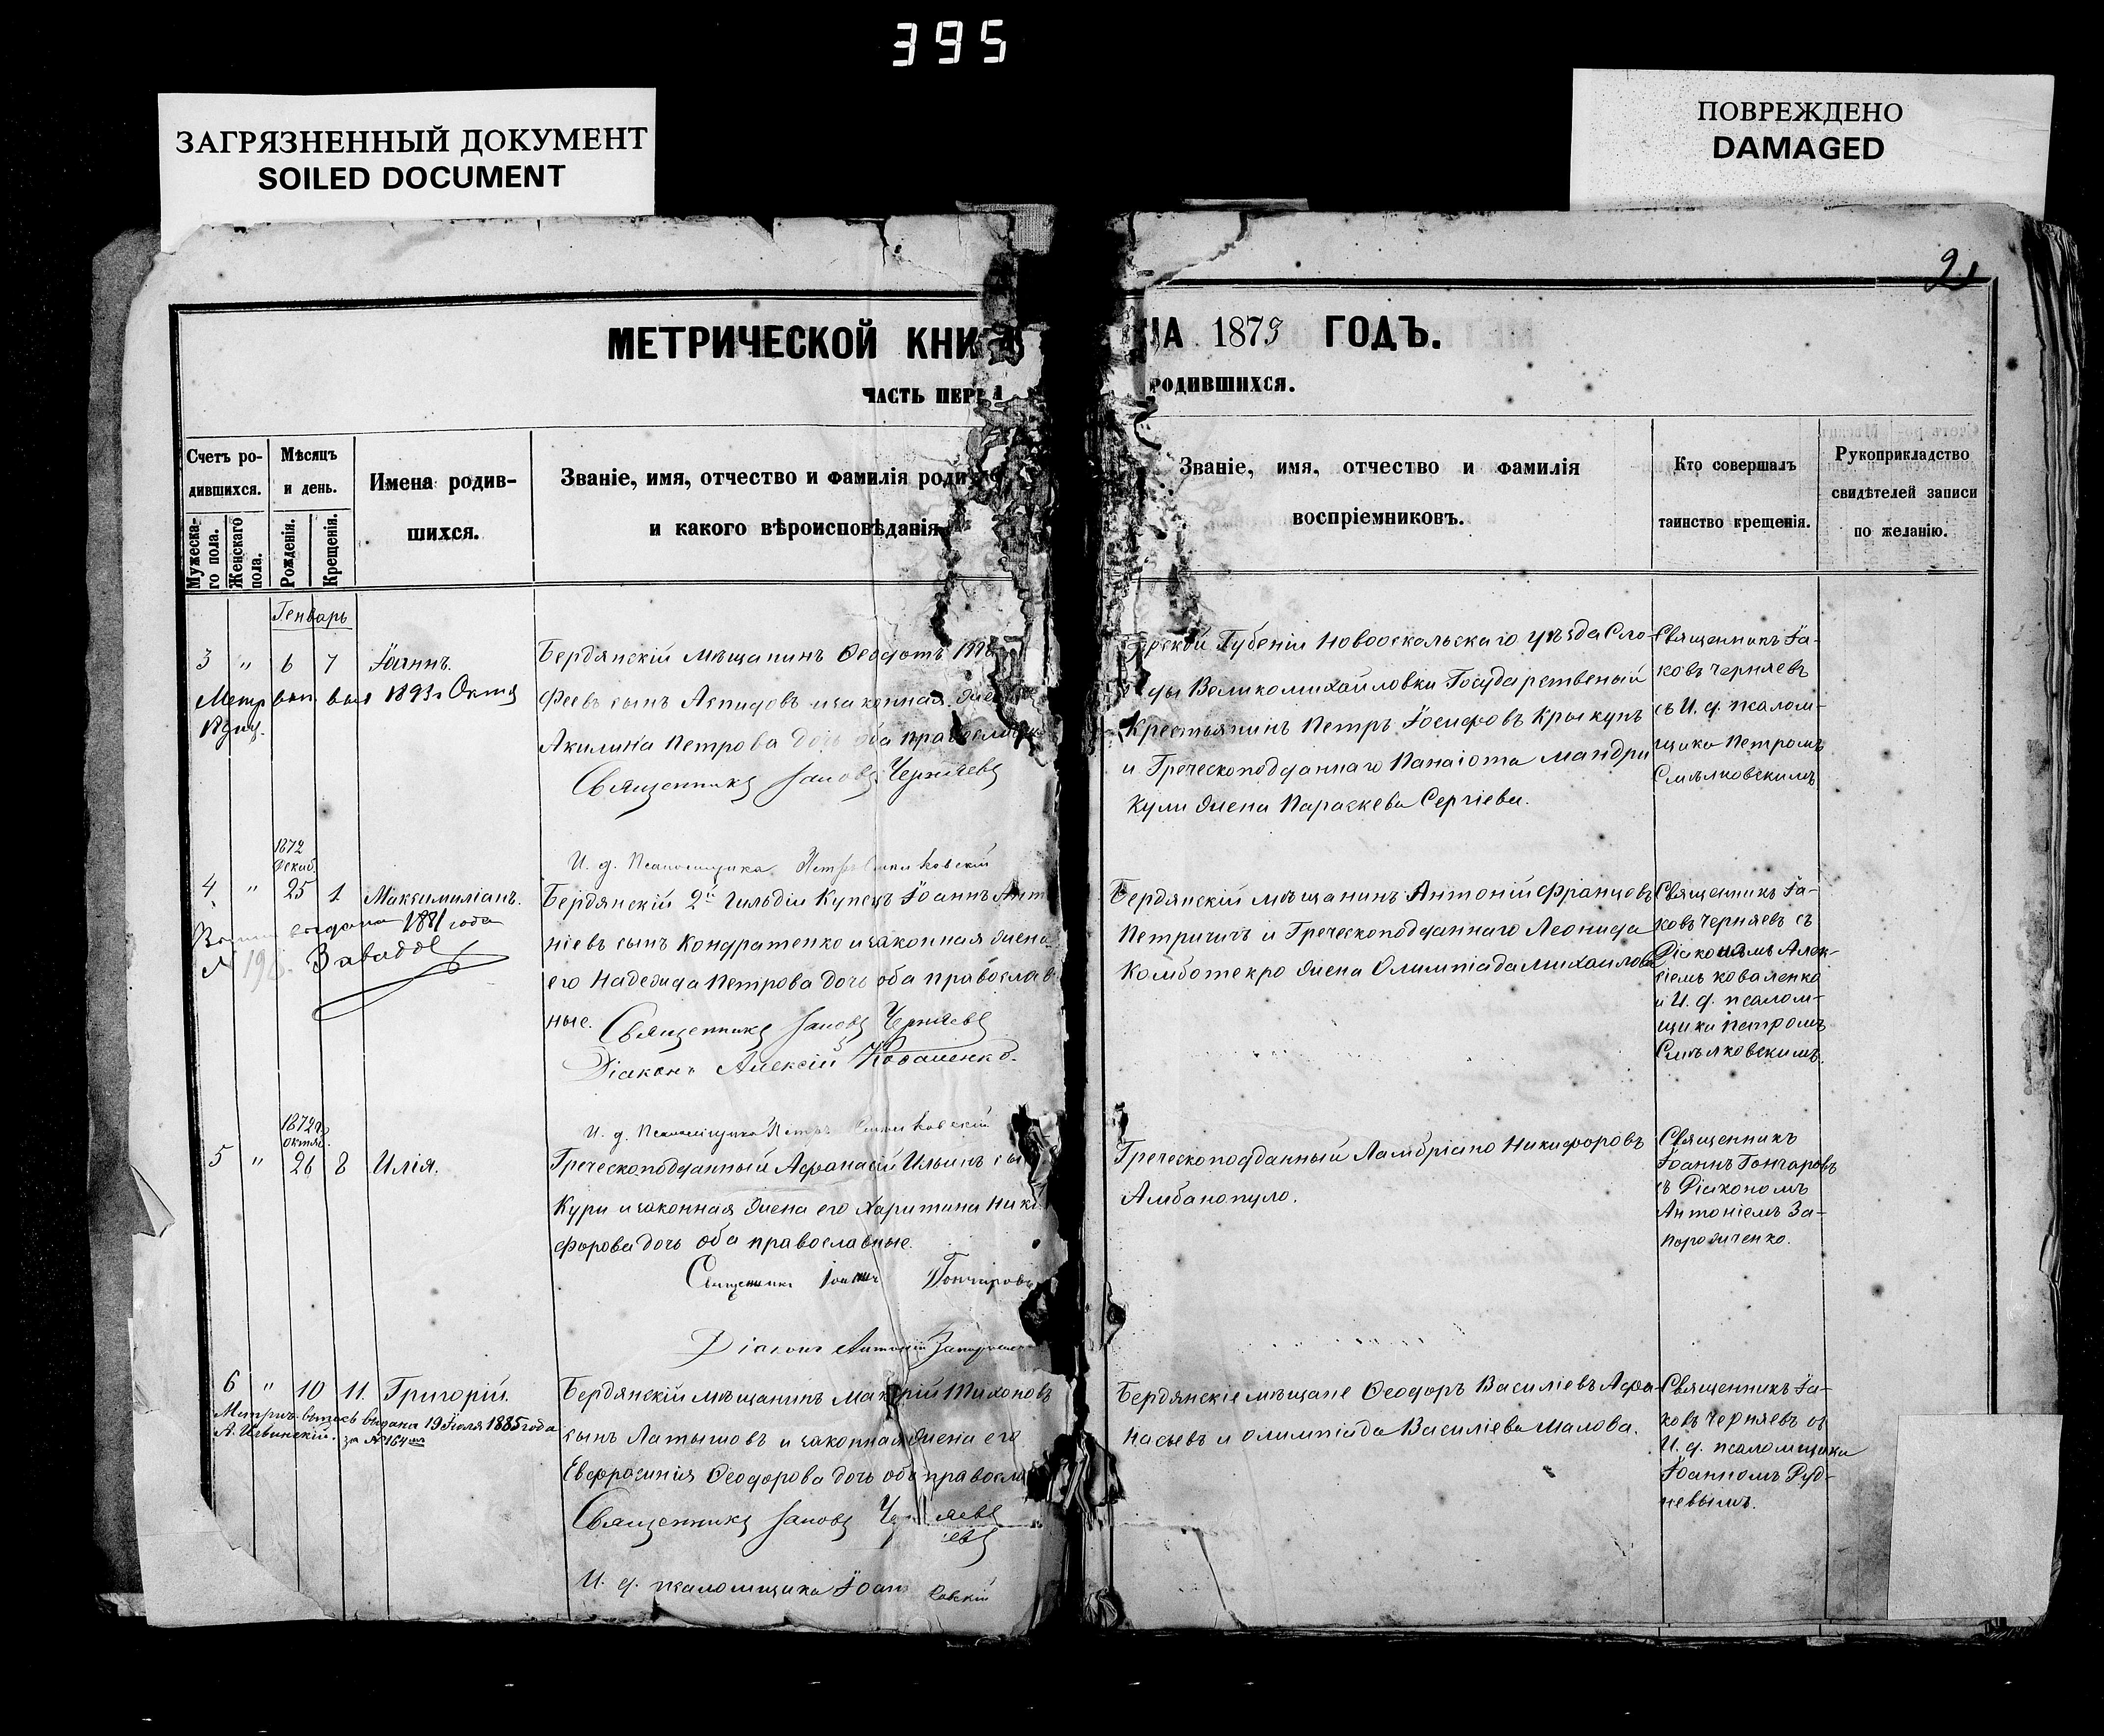 395
ЗАГРЯЗНЕННЫЙ ДОКУМЕНТ
SOILED DOCUMENT
ПОВРЕЖДЕНО
DAMAGED
МЕТРИЧЕСКОЙ КНИГИ
НА 1873 ГОДЪ.
ЧАСТЬ ПЕРВА
РОДИВШИХСЯ.
Счетъ ро-
дившихся.
Мужеска-
го пола.
Женскаго
пола.
Мѣсяцъ
и день.
Рожденія.
Крещенія.
Имена родив-
шихся.
Званіе, имя, отчество и фамилія роди
и какого вѣроисповѣданія
Званіе, имя, отчество и фамилія
воспріемниковъ.
Кто совершалъ
таинство крещенія.
Рукоприкладство
свидѣтелей записи
по желанію.
Генварь
3 " 6 7 Іоаннъ.
Метр вып выд 1893 г Октя
Бердянскій мѣщанинъ Ѳеодотъ
феевъ сынъ Аспидовъ и законная жена
Акилина Петрова дочь оба православ
Священникъ Іаковъ Черняевъ
рской Губеніи Новооскальскаго уѣзда Сло
ды Великомихайловки Государственый
Крестьянинъ Петръ Іосифовъ Крыкунъ
и Греческоподданнаго Панаіота Мандри
Кули жена Параскева Сергіева.
Священникъ Іа-
ковъ Черняевъ
съ И. д. псалом-
щика Петромъ
Смѣлковскимъ
1872
Декаб.
4 " 25 1 Максимиліанъ.
выдана 1881 года
И. д. Псаломщика Петръ
Бердянскій 2й Гильдіи Купецъ Іоаннъ Анто
ніевъ сынъ Кондратенко и законная жена
его Надежда Петрова дочь оба православ
ные. Священникъ Іаковъ Черняевъ
Діаконъ Алексій Коваленко.
Бердянскій мѣщанинъ Антоній Францовъ
Петричичъ и Греческоподданнаго Леонида
Комботекро жена Олимпіада Михаилова
Священникъ Іа-
ковъ Черняевъ съ
Діакономъ Алек-
сіемъ Коваленко
и И. д. псалом-
щика Петромъ
Смѣлковскимъ.
1872 г
октяб.
5 " 26 8 Илія.
И. д. Псаломщика Петръ
Греческоподданный Афанасій Ильинъ сы
Кури и законная жена его Харитина Ники
форова дочь оба православные.
Священникъ Іоаннъ Гончаровъ
Діаконъ Антоній
Греческоподданный Ламбріано Никифоровъ
Амбанопуло.
Священникъ
Іоаннъ Гончаровъ
съ Діакономъ
Антоніемъ За-
пороженко.
6 " 10 11. Григорій.
Метрич. выпись выдана 19 Іюля 1885 года
за № 164
Бердянскій мѣщанинъ Макарій Тихоновъ
сынъ Латышовъ и законная жена его
Евфросинія Ѳеодорова дочь оба правосла
Священникъ Іаковъ Черняевъ
И. д. псаломщика Іоан
Бердянскіе мѣщане Ѳеодоръ Василіевъ Афа-
насьевъ и Олимпіада Василіева Шалова.
Священникъ Іа-
ковъ Черняевъ съ
И. д. псаломщика
Іоанномъ Руд-
невымъ.